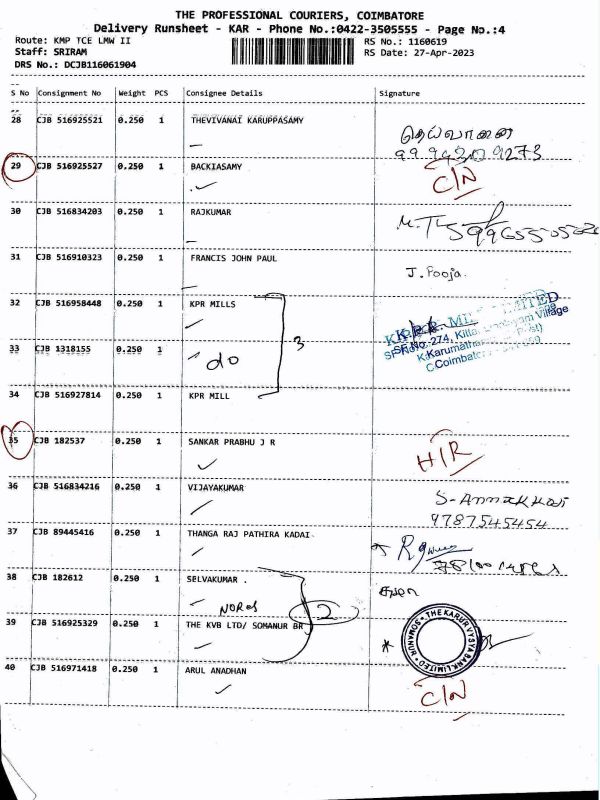 THE PROFESSIONAL COURIERS, COIMBATORE
Delivery Runsheet - KAR - Phone No.:0422-3505555 - Page No.:4
Route: KMP TCE LMW II RS No.: 1160619
Staff: SRIRAM RS Date: 27-Apr-2023
DRS No.: DCJB116061904
S No Consignment No Weight PCS Consignee Details Signature
28 CJB 516925521 0.250 1 THEVIVANAI KARUPPASAMY
தெய்வானை
29 CJB 516925527 0.250 1 BACKIASAMY C/N
30 CJB 516834203 0.250 1 RAJKUMAR
31 CJB 516910323 0.250 1 FRANCIS JOHN PAUL J. Pooja.
32 CJB 516958448 0.250 1 KPR MILLS
3
33 CJB 1318155 0.250 1 do
34 CJB 516927814 0.250 1 KPR MILL
35 CJB 182537 0.250 1 SANKAR PRABHU J R H/R
36 CJB 516834216 0.250 1 VIJAYAKUMAR
9787545454
37 CJB 89445416 0.250 1 THANGA RAJ PATHIRA KADAI
38 CJB 182612 0.250 1 SELVAKUMAR .
2
39 CJB 516925329 0.250 1 THE KVB LTD/ SOMANUR BR
THE KARUR VYSYA BANK LIMITED SOMANUR
40 CJB 516971418 0.250 1 ARUL ANADHAN C/N